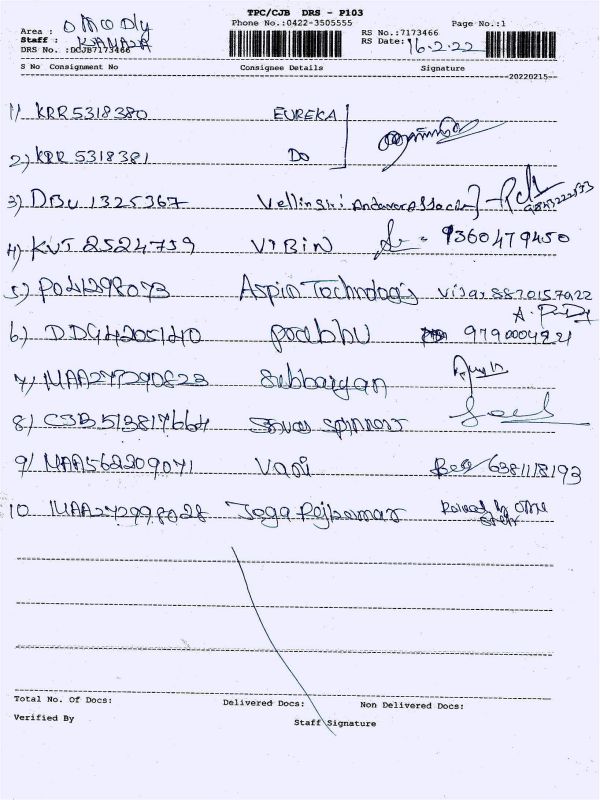 TPC/CJB DRS - P103
Phone No.:0422-3505555
Page No.:1
Area : Office Dly
Staff : KANAZA
DRS No. :DCJB7173466
RS No.:7173466
RS Date: 16.2.22
S No Consignment No Consignee Details Signature
20220215
1) KRR 5318380 EUREKA
2) KRR 5318381 DO
3) DBU 1325367 Vellingiri Andavar
4) KVT 2524759 VIBIN 9360479450
5) PO41298073 Aspin Technologis Vijay 8870157922
6) DDG4205140 Prabhu 9790004921
7) MAA272290823 Subbaiyan
8) CJB513817664 Spinners
9) MAA562209071 Vani 6381118193
10 MAA272998028 Joga Rajkumar
Total No. Of Docs: Delivered Docs: Non Delivered Docs:
Verified By Staff Signature